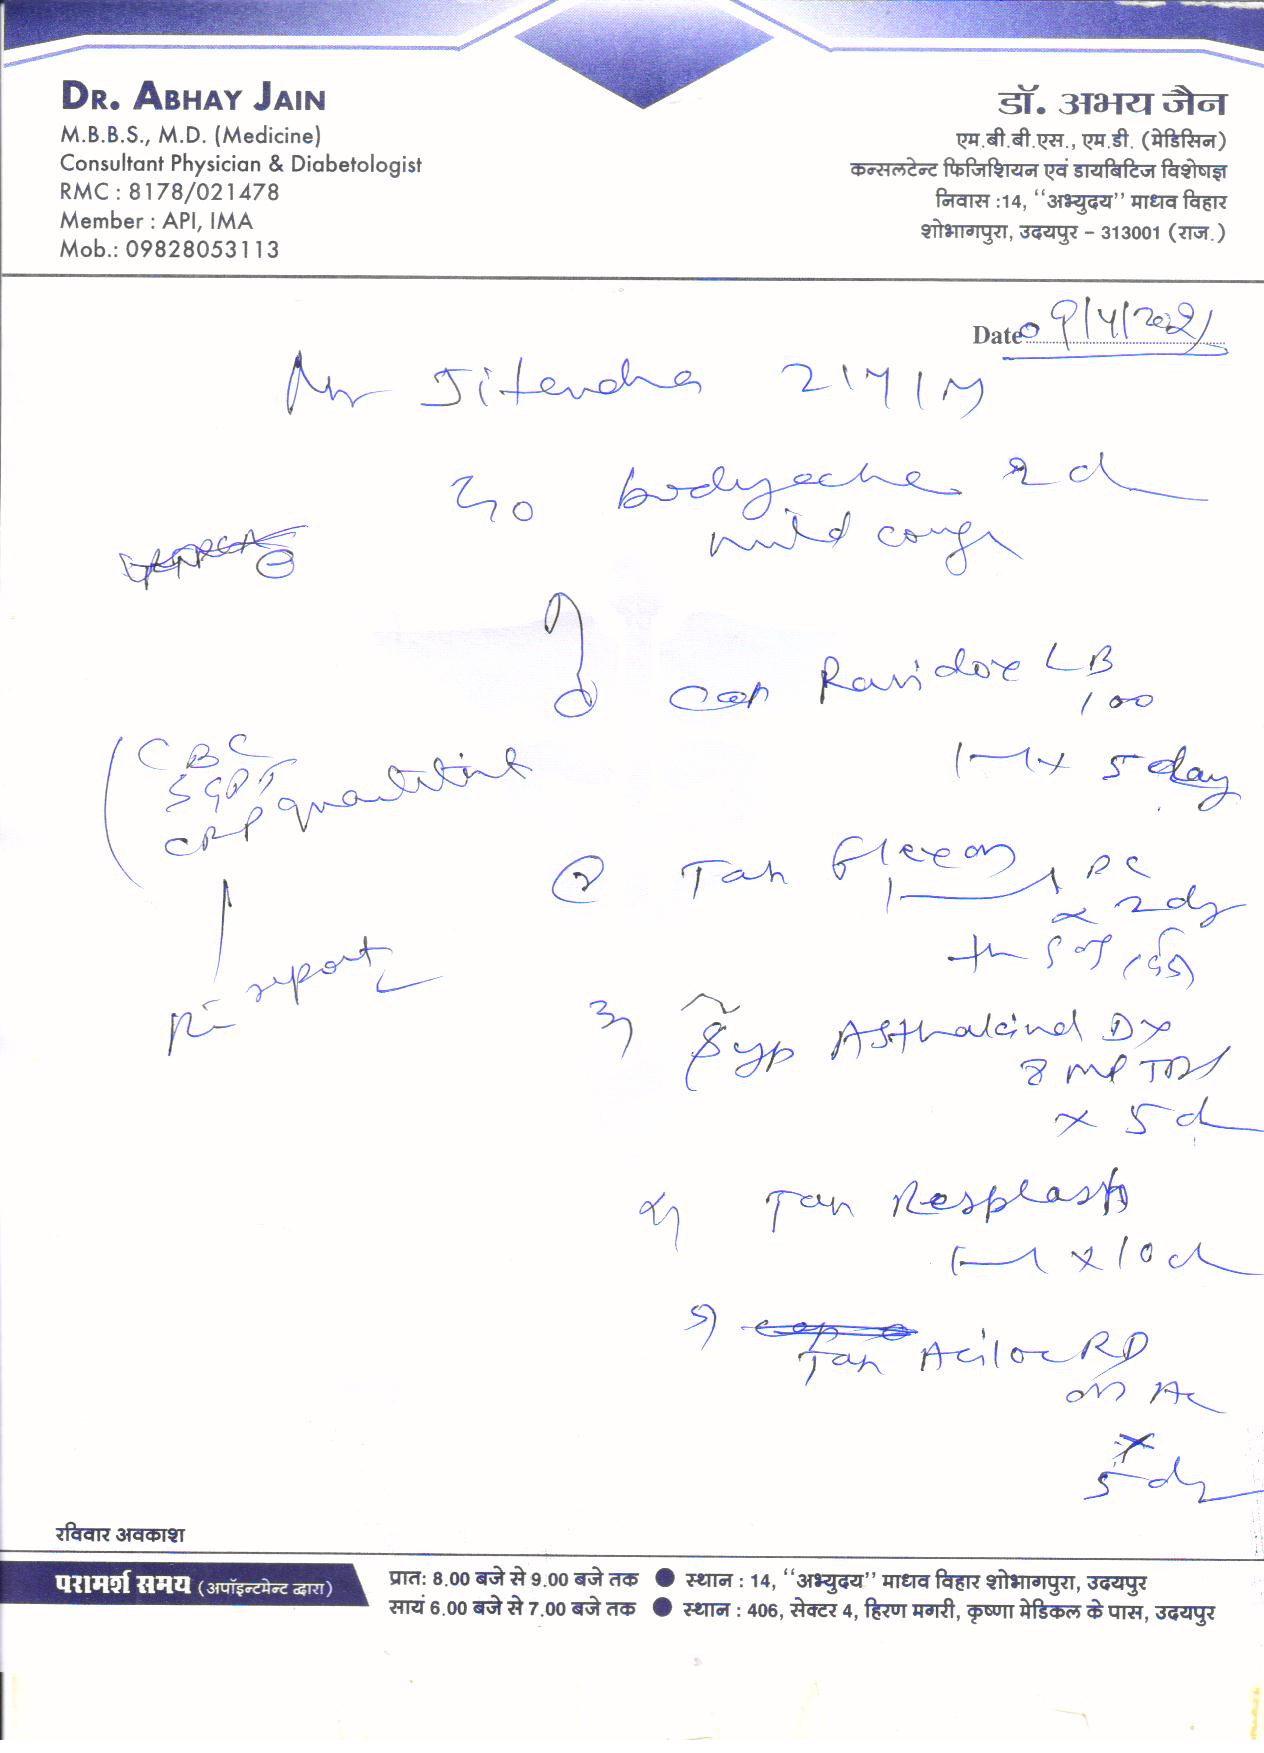 DR. ABHAY JAIN
M.B.B.S., M.D. (Medicine)
Consultant Physician & Diabetologist
RMC : 8178/021478
Member : API, IMA
Mob.: 09828053113
डॉ. अभय जैन
एम.बी.बी.एस., एम.डी. (मेडिसिन)
कन्सलटेन्ट फिजिशियन एवं डायबिटिज विशेषज्ञ
निवास :14, ‘‘अभ्युदय’’ माधव विहार
शोभागपुरा, उदयपुर – 313001 (राज.)
Date 09/4/2021
Mr Jitendra 21Y/M
bodyache 2d
mild cough
Cap Ravidox LB
100
1—1 x 5 day
CBC
SGPT
CRP quantitive
report
2 Tab Flexon
1—1 PC
x 2 dy
3) Syp Asthakind Dx
8 ml TDS
x 5d
4) Tab Resplash
1—1 x 10d
5)
Tab Aciloc RD
OD AC
x
5 dy
रविवार अवकाश
परामर्श समय (अपॉइन्टमेन्ट द्वारा)
प्रात: 8.00 बजे से 9.00 बजे तक ● स्थान : 14, ‘‘अभ्युदय’’ माधव विहार शोभागपुरा, उदयपुर
सायं 6.00 बजे से 7.00 बजे तक ● स्थान : 406, सेक्टर 4, हिरण मगरी, कृष्णा मेडिकल के पास, उदयपुर